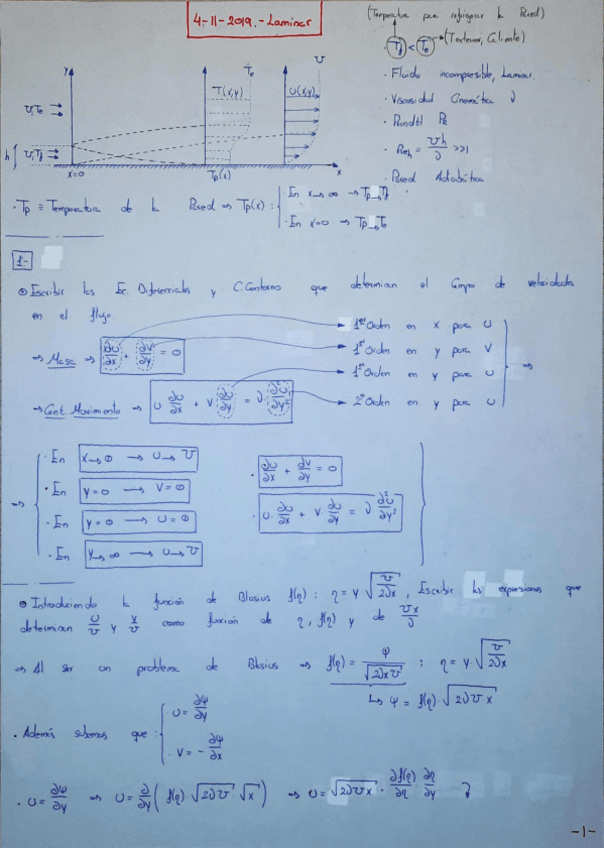 4-11-2019.- Laminar
(Temperatura para refrigerar la Pared)
Tf < Te → (Exterior, Caliente)
· Fluido incompresible, Laminar.
· Viscosidad Cinemática ν
· Prandtl Pr
· Reh = Uh/ν >>1
· Pared Adiabática
y
U,Te
h
U,Tf
x=0
T(x,y)
Te
Tp(x)
u(x,y)
U
x
· Tp ≡ Temperatura de la Pared ⇒ Tp(x) :
· En x→∞ → Tp→Tf
· En x=0 → Tp→Te
1-
⊙ Escribir las Ec. Diferenciales y C. Contorno que determinan el Campo de velocidades
en el flujo
⇒ Masa ⇒ ∂u/∂x + ∂v/∂y = 0
→ 1er Orden en x para u
→ 1er Orden en y para v
→ 1er Orden en y para u
→ 2º Orden en y para u
⇒
⇒ Cant. Movimiento ⇒ u ∂u/∂x + v ∂u/∂y = ν ∂²u/∂y²
⇒
· En x→0 → u→U
· En y=0 → v=0
· En y=0 → u=0
· En y→∞ → u→U
· ∂u/∂x + ∂v/∂y = 0
· u·∂u/∂x + v ∂u/∂y = ν ∂²u/∂y²
⊙ Introduciendo la función de Blasius f(η) : η = y √(U/2νx), Escribir las expresiones que
determinan u/U y v/U como función de η, f(η) y de Ux/ν
⇒ Al ser un problema de Blasius ⇒ f(η) = ψ/√(2νxU) : η = y·√(U/2νx)
↳ ψ = f(η)·√(2νUx)
· Además sabemos que :
· u = ∂ψ/∂y
· v = - ∂ψ/∂x
· u = ∂ψ/∂y ⇒ u = ∂/∂y (f(η)·√(2νU)·√x) ⇒ u = √(2νUx) · ∂f(η)/∂η · ∂η/∂y
-1-